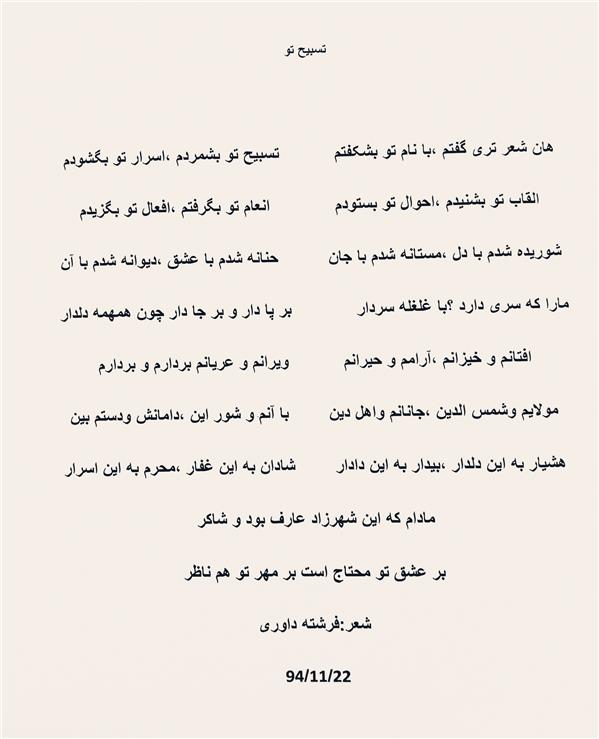 تسبیح تو
هان شعر تری گفتم ،با نام تو بشکفتم تسبیح تو بشمردم ،اسرار تو بگشودم
القاب تو بشنیدم ،احوال تو بستودم انعام تو بگرفتم ،افعال تو بگزیدم
شوریده شدم با دل ،مستانه شدم با جان حنانه شدم با عشق ،دیوانه شدم با آن
مارا که سری دارد ؟با غلغله سردار بر پا دار و بر جا دار چون همهمه دلدار
افتانم و خیزانم ،آرامم و حیرانم ویرانم و عریانم بردارم و بردارم
مولایم وشمس الدین ،جانانم واهل دین با آنم و شور این ،دامانش ودستم بین
هشیار به این دلدار ،بیدار به این دادار شادان به این غفار ،محرم به این اسرار
مادام که این شهرزاد عارف بود و شاکر
بر عشق تو محتاج است بر مهر تو هم ناظر
شعر:فرشته داوری
94/11/22